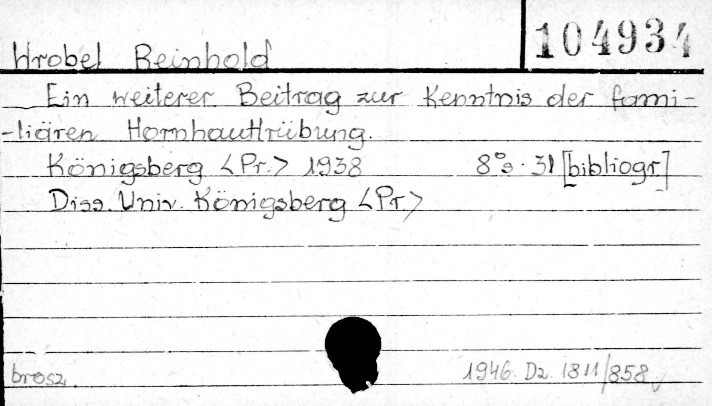 104934
Wrobel Reinhold
Ein weiterer Beitrag zur Kenntnis der fami-
-liären Hornhauttrübung.
Königsberg <Pr.> 1938 8° s. 31 [bibliogr.]
Diss. Univ. Königsberg <Pr.>
brosz. 1946. Dz. 1811/858